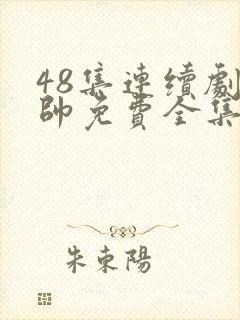 48集連續劇
帥免費全集
朱東陽